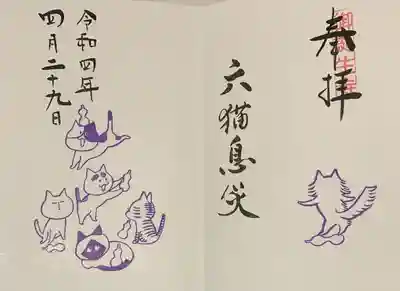 奉拝
御誕生寺
六猫息災
令和四年
四月二十九日